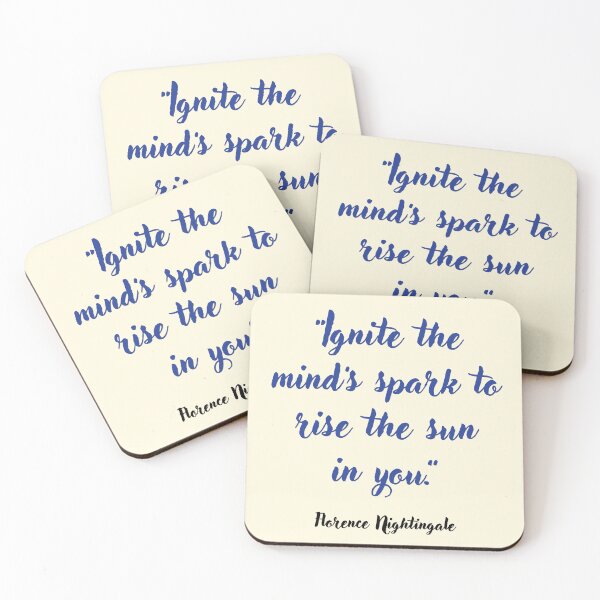 "Ignite the
mind's spark to
rise the sun
"Ignite the
mind's spark to
rise the sun
in you."
"Ignite the
mind's spark to
rise the sun
in you
Florence Ni
"Ignite the
mind's spark to
rise the sun
in you."
Florence Nightingale